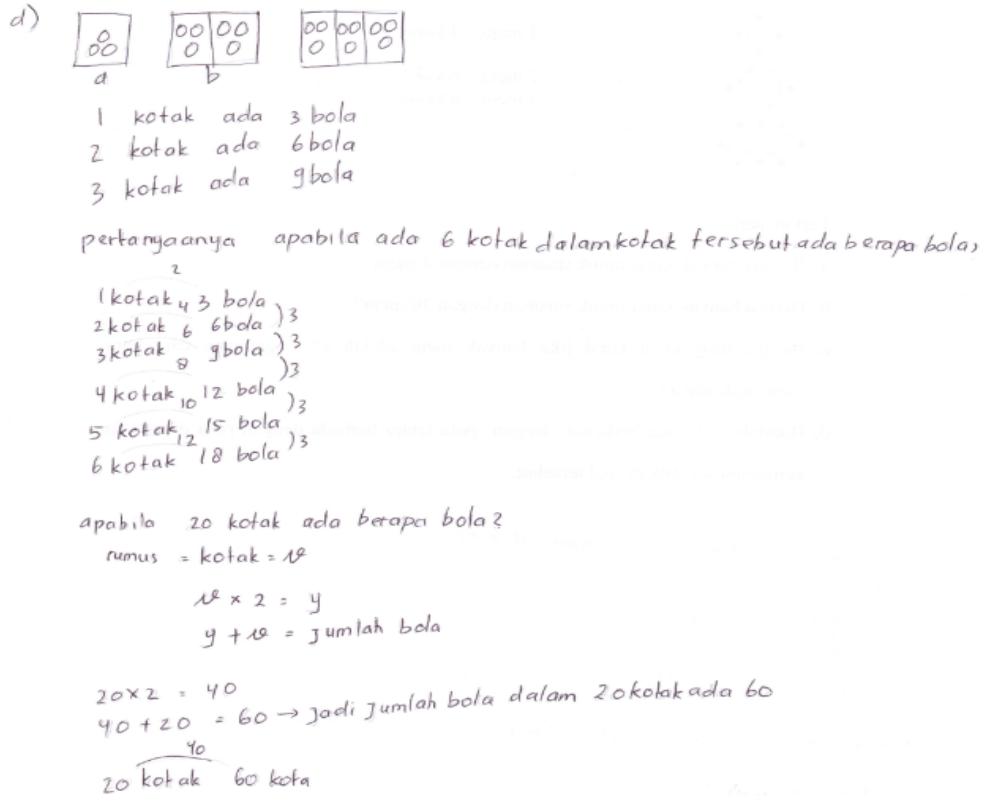 d)
a b
1 kotak ada 3 bola
2 kotak ada 6 bola
3 kotak ada 9 bola
pertanyaanya apabila ada 6 kotak dalam kotak tersebut ada berapa bola,
2
1 kotak 4 3 bola )3
2 kotak 6 6 bola )3
3 kotak 8 9 bola )3
4 kotak 10 12 bola )3
5 kotak 12 15 bola )3
6 kotak 18 bola
apabila 20 kotak ada berapa bola?
rumus = kotak =
× 2 = y
y + = jumlah bola
20 × 2 = 40
40 + 20 = 60 → jadi jumlah bola dalam 20 kotak ada 60
40
20 kotak 60 kota